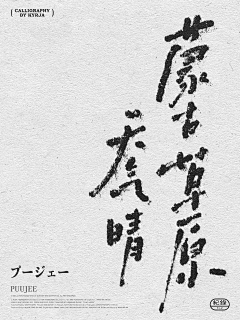 CALLIGRAPHY
BY KYRJA
蒙古草原
天气晴
プージェー
PUUJEE
紀錄